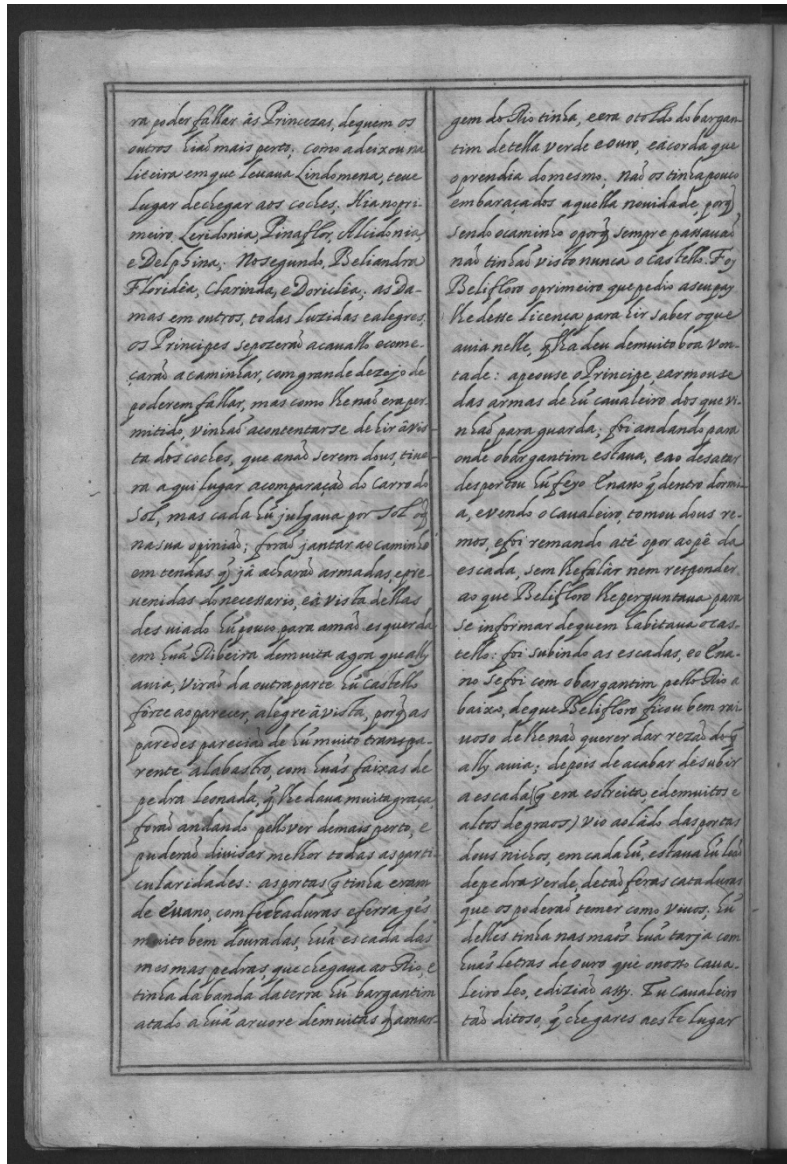 ra poder fallar ás Princezas, dequem os
outros hiaõ mais perto; como adeixou na
liteira emque leuaua Lindomena, teue
lugar dechegar aos coches; Hia no pri-
meiro Leridonia, Pinaflor, Alcidonia,
e Delphina; No segundo, Beliandra
Floridéa, Clarinda, e Doricléa; as Da-
mas em outros, todas luzidas e alegres,
os Principes sepozeraõ acauallo ecome-
çaraõ acaminhar, com grande dezejo de
poderem fallar, mas como lhe naõ era per-
mitido, vinhaõ acontentarse de hir á vis-
ta dos coches, que anaõ serem dous, tiue-
ra aqui lugar acomparaçaõ do Carro do
Sol, mas cada hũ julgaua por Sol oq̃
na sua opiniaõ; foraõ jantar ao caminho
em tendas q̃ já acharaõ armadas, epre-
uenidas do necessario, eá vista dellas
desuiado hũ pouco para amaõ esquerda
em hũa Ribeira demuita agoa que ally
auia, viraõ da outra parte hũ Castello
forte ao parecer, alegre á vista, porq̃ as
paredes pareciaõ de hũ muito transpa-
rente alabastro, com hũas faixas de
pedra leonada, q̃ lhe daua muita graça,
foraõ andando pello ver demais perto, e
puderaõ divisar melhor todas as parti-
cularidades: as portas q̃ tinha eram
de euano, com fechaduras eferragẽs
muito bem douradas, hũa escada das
mesmas pedras, que chegaua ao Rio, e
tinha da banda da terra hũ bargantim
atado a hũa aruore demuitas q̃ amar-
gem do Rio tinha, eera o toldo do bargan-
tim detella verde e ouro, eacorda que
oprendia domesmo. Naõ os tinha pouco
embaraçados aquella nouidade, porq̃
sendo ocaminho oporq̃ sempre passauaõ
naõ tinhaõ visto nunca o castello. Foj
Belifloro oprimeiro que pedio aseu pay
lhe desse licença para hir saber oque
auia nelle, q̃ lha deu demuito boa von-
tade: apeouse o Principe, earmouse
das armas de hũ caualeiro dos que vi-
nhaõ para guarda; foi andando para
onde obargantim estaua, eao desatar
despertou hũ feyo Enano q̃ dentro dormi-
a, e vendo o caualeiro, tomou dous re-
mos, efoi remando até opor aopé da
escada, sem lhe falar nem responder
ao que Belifloro lhe perguntaua para
se informar dequem habitaua o cas-
tello: foi subindo as escadas, eo Ena-
no se foi com obargantim pello Rio a
baixo, de que Belifloro ficou bem rai-
uoso de lhe naõ querer dar rezaõ doq̃
ally auia; depois de acabar desubir
a escada (q̃ era estreita, edemuitos e
altos degraos) vio ao lado das portas
dous nichos, em cada hũ, estaua hũ leaõ
depedra verde, detaõ feras cataduras
que os poderaõ temer como viuos, hũ
delles tinha nas maõs hũa tarja com
hũas letras de ouro que onosso caua-
leiro leo, ediziaõ assy. Tu caualeiro
taõ ditoso, q̃ chegares aeste lugar